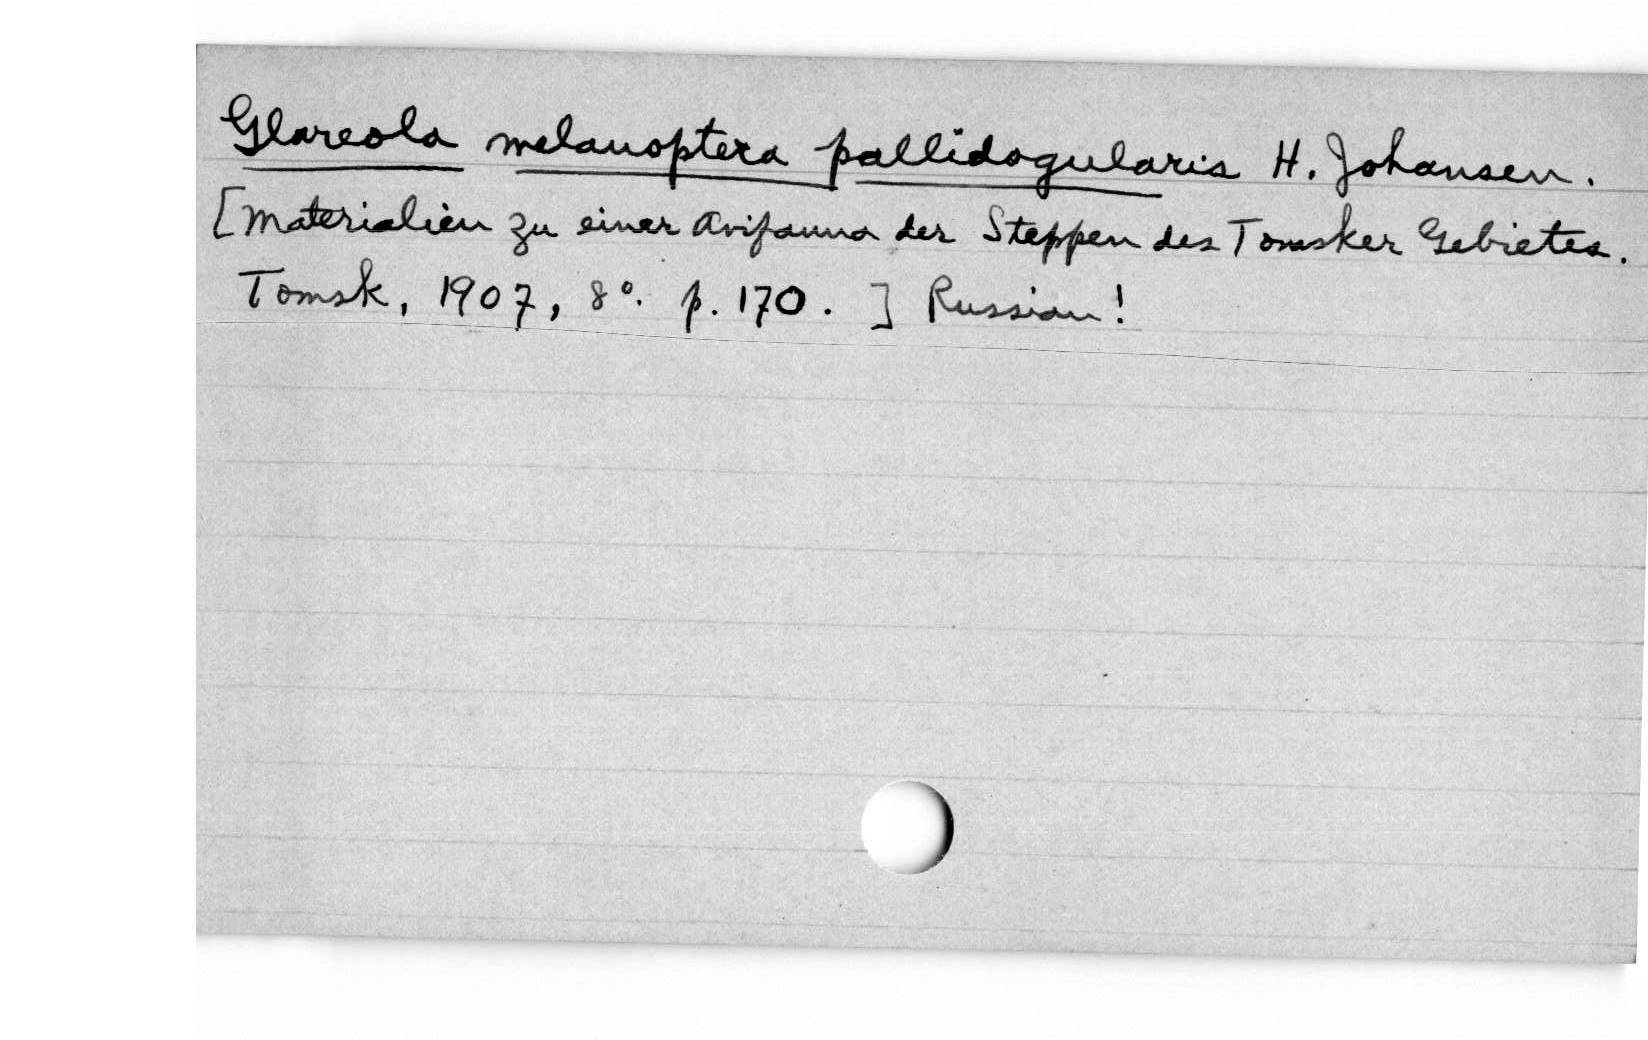 Glareola melanoptera pallidogularis H. Johansen.
[Materialien zu einer Avifauna der Steppen des Tomsker Gebietes.
Tomsk, 1907, 8°. p. 170. ] Russian!